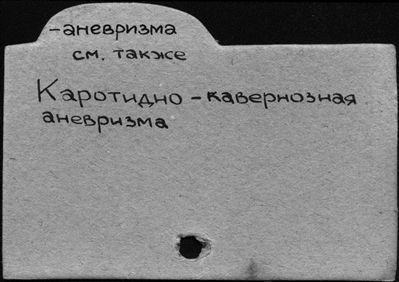 -аневризма
см. также
Каротидно - кавернозная
аневризма